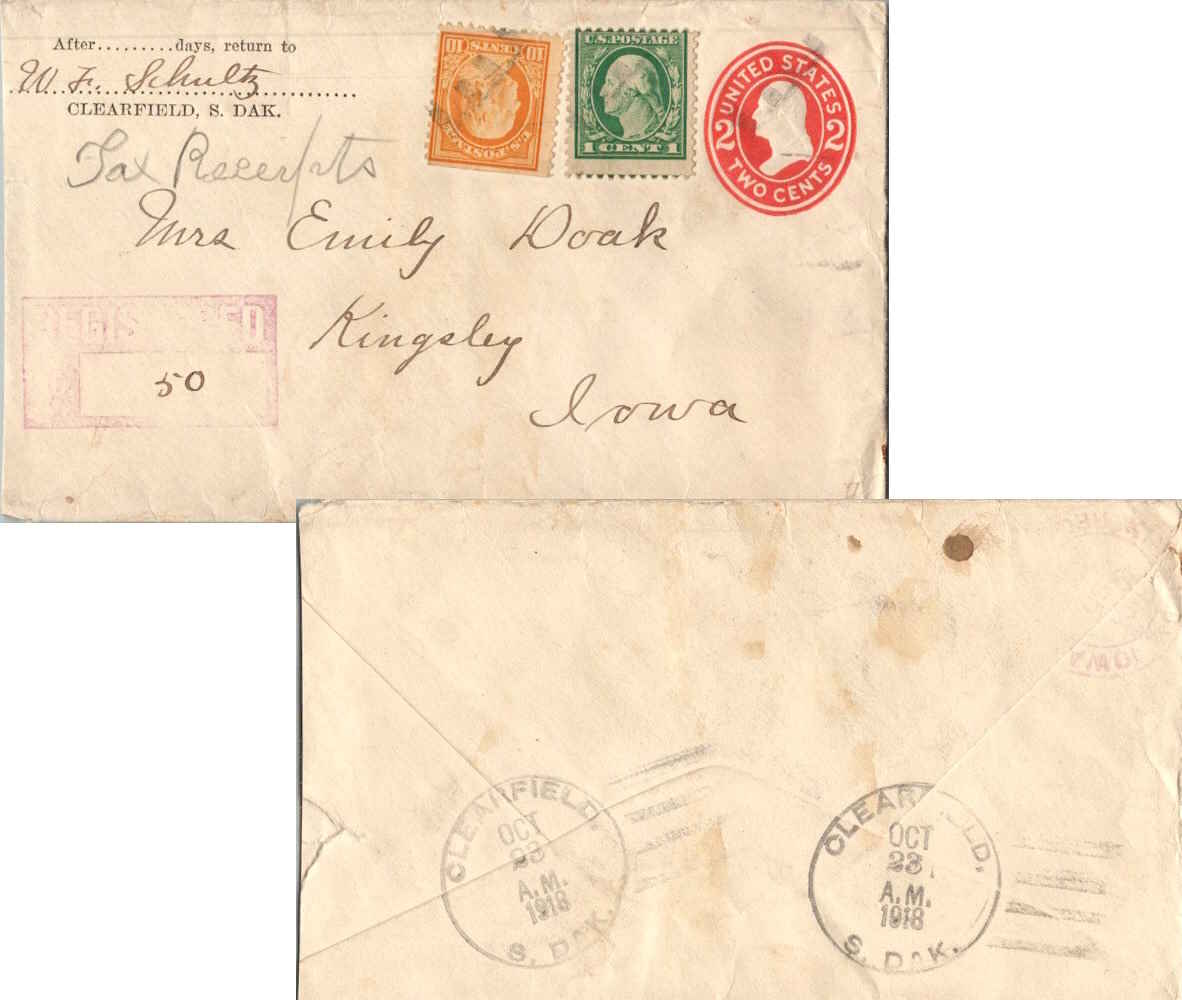 After.........days, return to
W. F. Schultz
CLEARFIELD, S. DAK.
Tax Receipts
10 CENTS 10
U.S. POSTAGE
U.S. POSTAGE
1 CENT 1
UNITED STATES
2 2
TWO CENTS
Mrs Emily Doak
Kingsley
Iowa
REGISTERED
50
IOWA
CLEARFIELD,
OCT
23
A.M.
1918
S. DAK.
CLEARFIELD,
OCT
23
A.M.
1918
S. DAK.